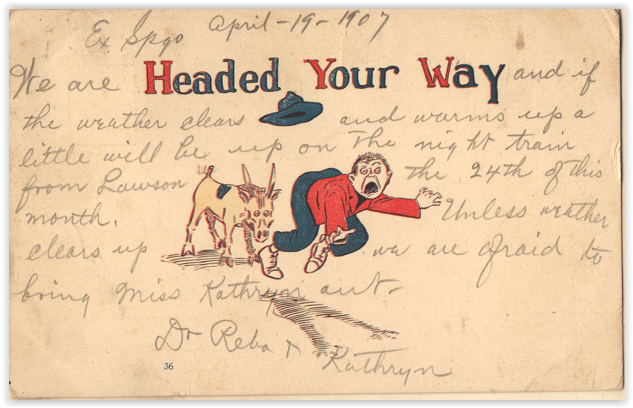 Ex Spgo April-19-1907
We are Headed Your Way and if
the weather clears and warms up a
little will be up on the night train
from Lawson the 24th of this
month. Unless weather
clears up we are afraid to
bring Miss Kathryn out-
Dr Reba & Kathryn
36